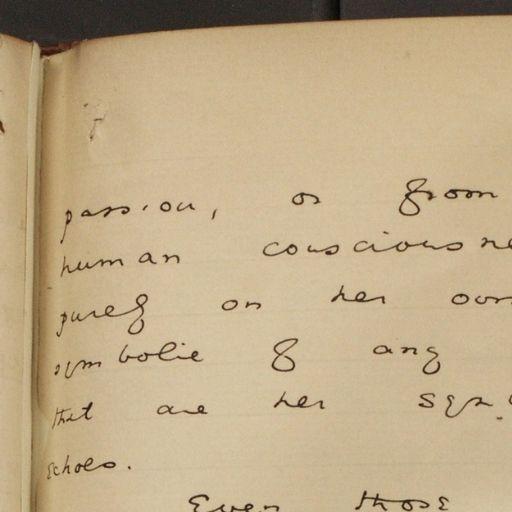 passion, or from
human consciousne
purely on her own
symbolic of any
that are her sym
Echoes.
Even those